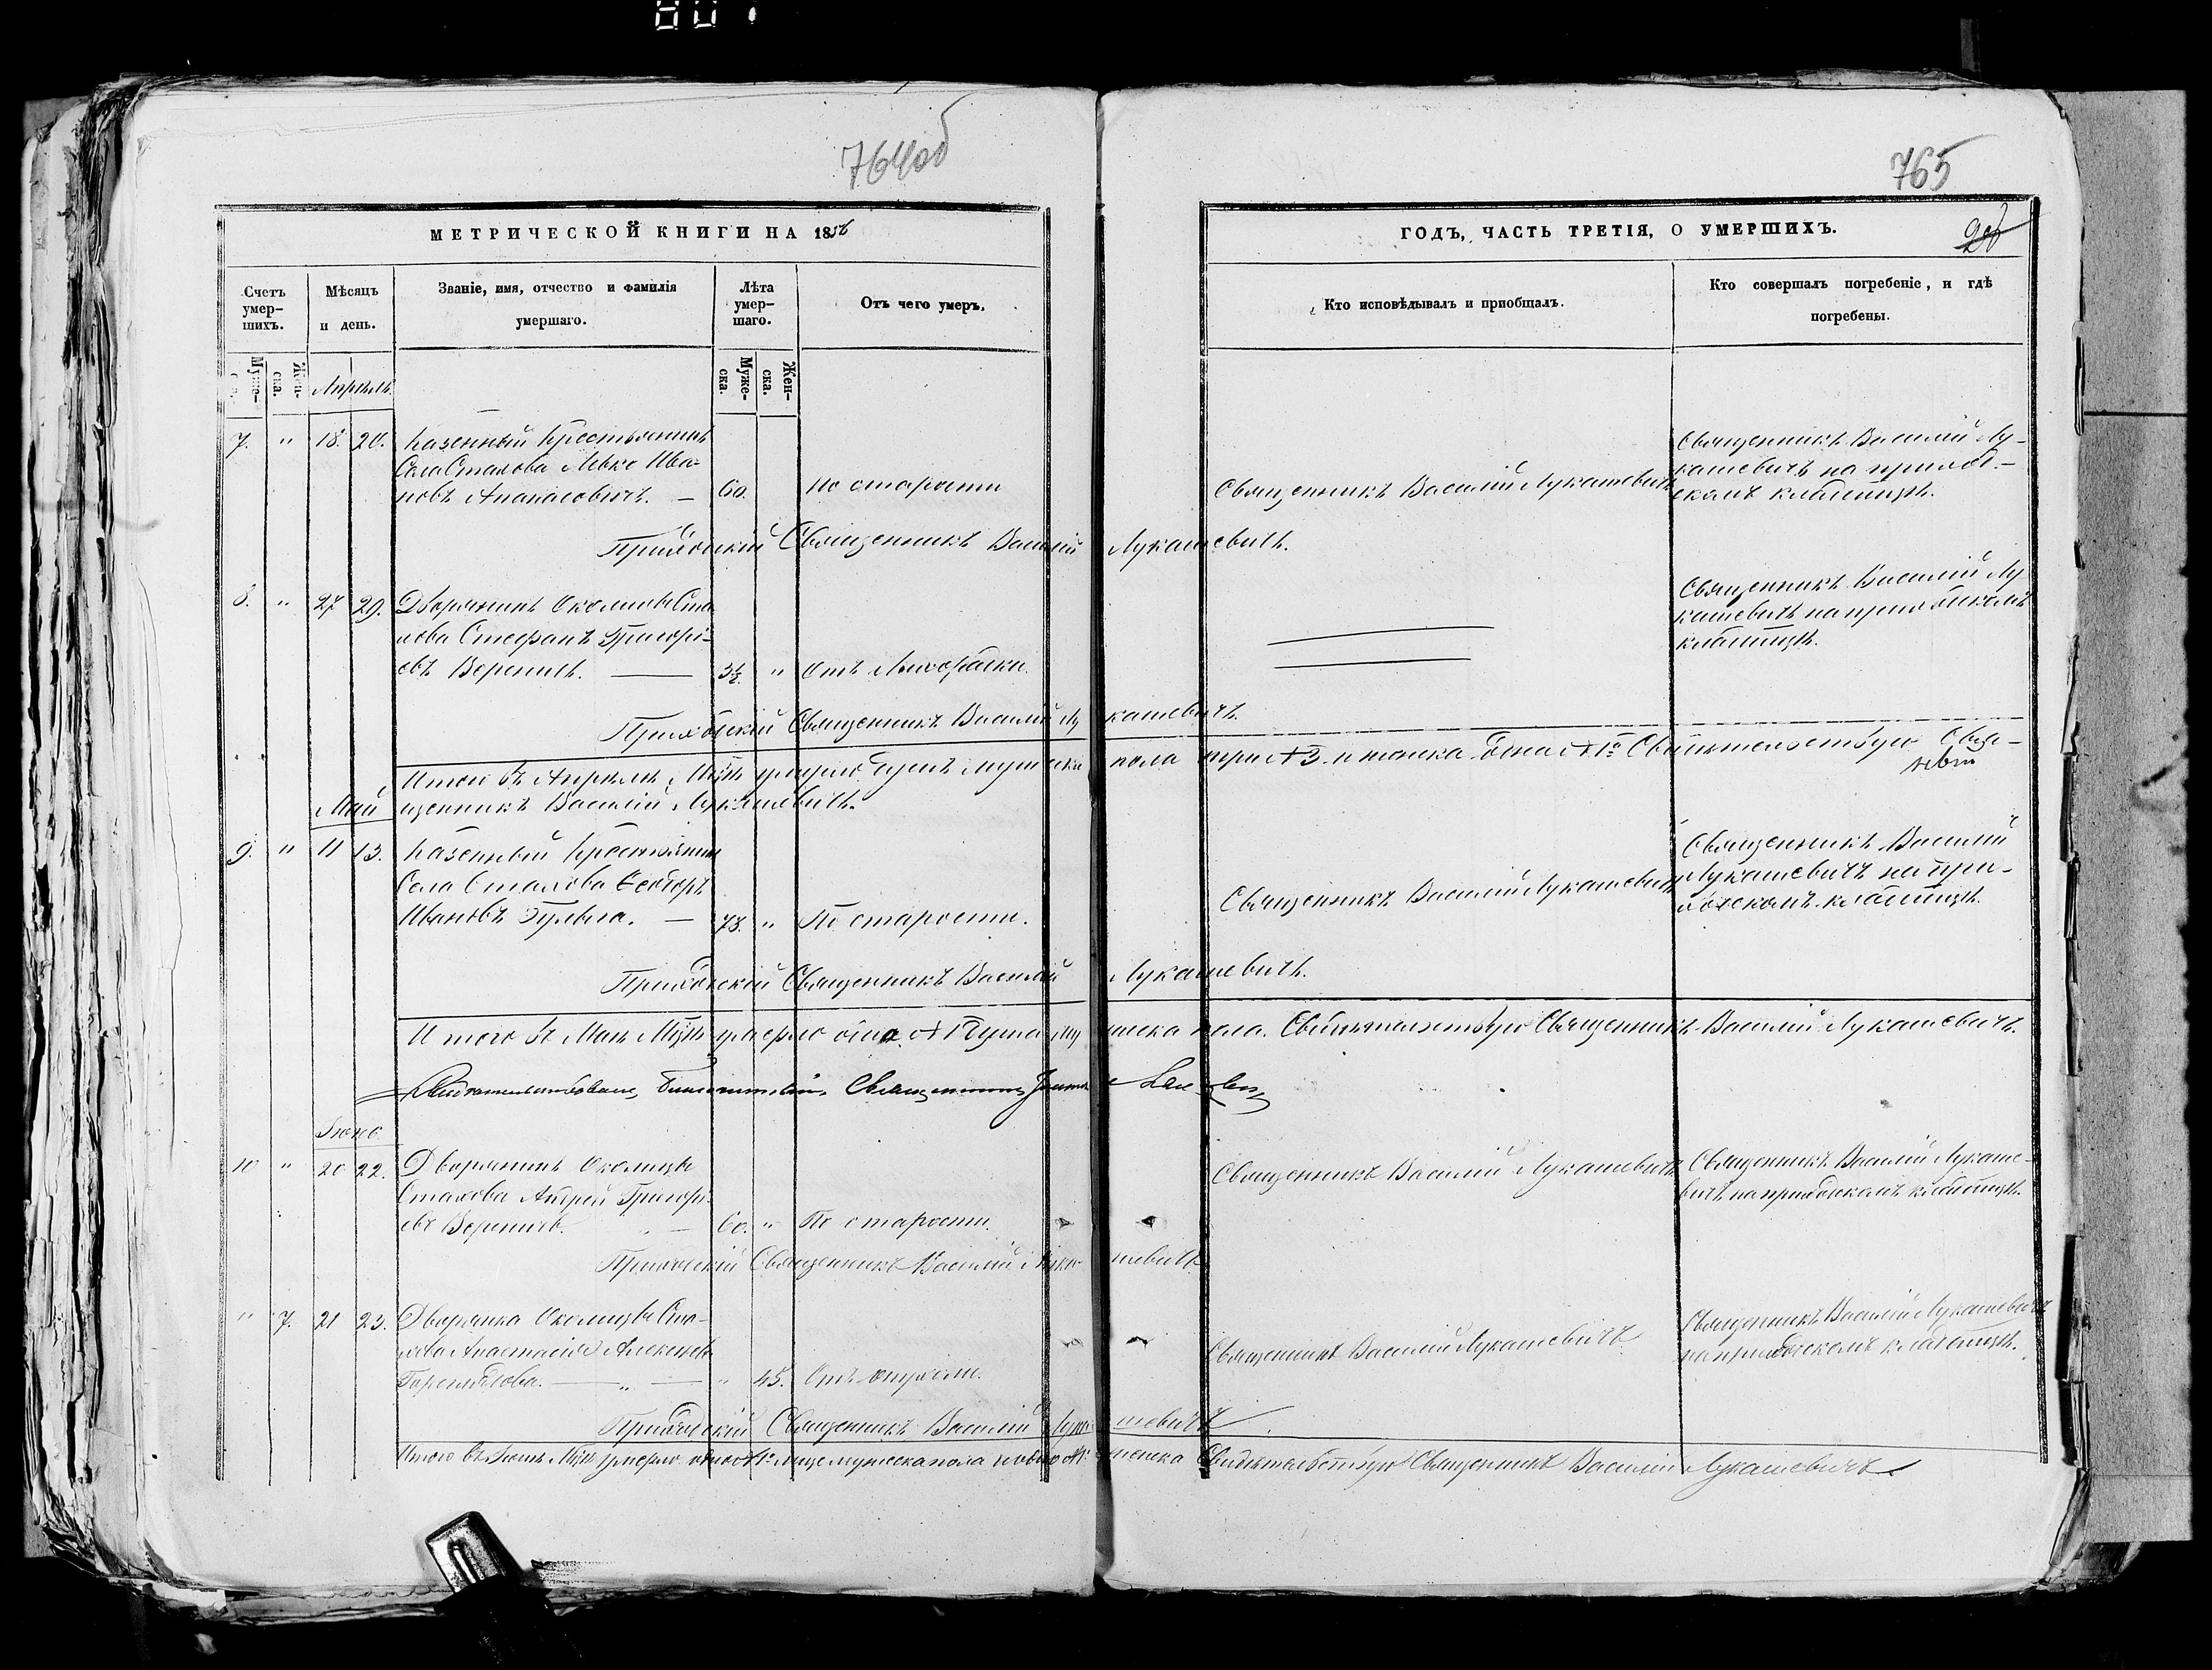 764об
765
МЕТРИЧЕСКОЙ КНИГИ НА 1856
ГОДЪ, ЧАСТЬ ТРЕТІЯ, О УМЕРШИХЪ.
Счетъ умер-шихъ.
Мѣсяцъ и день.
Званіе, имя, отчество и фамилія умершаго.
Лѣта умер-шаго.
Отъ чего умеръ.
Кто исповѣдывалъ и пріобщалъ.
Кто совершалъ погребеніе, и гдѣ погребены.
Муже-
Жен-ска.
Муже-ска.
Жен-ска.
Апрѣль
7. " 18. 20. Казенный Крестьянинъ
Села Стахова Левко Ива-
новъ Апанасовичъ. — 60. По старости
Священникъ Василій Лукашевичъ
Священникъ Василій Лу-
кашевичъ на приход-
скомъ кладбищѣ.
Приходскій Священникъ Василій Лукашевичъ.
8. " 27 29. Дворянинъ Околицы Ста
хова Стефанъ Григорі-
евъ Вереничъ. — 3½ " Отъ Лихорадки.
Священникъ Василій Лу
кашевичъ на приходскомъ
кладбищѣ.
Приходскій Священникъ Василій Лукашевичъ.
Итого въ Апрѣлѣ Мцѣ умерло душъ мужеска пола три №3. и женска одна №1. Свидѣтельствую Свя-
щенникъ Василій Лукашевичъ.
Май
9. " 11 13. Казенный Крестьянинъ
Села Стахова Ѳеодоръ
Ивановъ Гульга. — 78. " По старости.
Священникъ Василій Лукашевичъ
Священникъ Василій
Лукашевичъ на при-
ходскомъ кладбищѣ.
Приходскій Священникъ Василій Лукашевичъ.
Итого въ Маѣ Мцѣ умерло одна №1 душа мужеска пола. Свидѣтельствую Священникъ Василій Лукашевичъ.
Свидѣтельствовалъ Благочинный Священникъ
Іюнь.
10 " 20 22. Дворянинъ Околицы
Стахова Андрей Григорі-
евъ Вереничъ. " — 60. " По старости.
Священникъ Василій Лукашевичъ
Священникъ Василій Лукаше-
вичъ на приходскомъ кладбищѣ.
Приходскій Священникъ Василій Лукашевичъ
" 7. 21 23. Дворянка Околицы Ста-
хова Анастасія Алексѣева
— " — " 45. Отъ
Священникъ Василій Лукашевичъ
Священникъ Василій Лукашевичъ
на приходскомъ кладбищѣ.
Приходскій Священникъ Василій Лукашевичъ
Итого въ Іюнѣ Мцѣ умерло одно №1. лице мужеска пола и одно №1. женска Свидѣтельствую Священникъ Василій Лукашевичъ